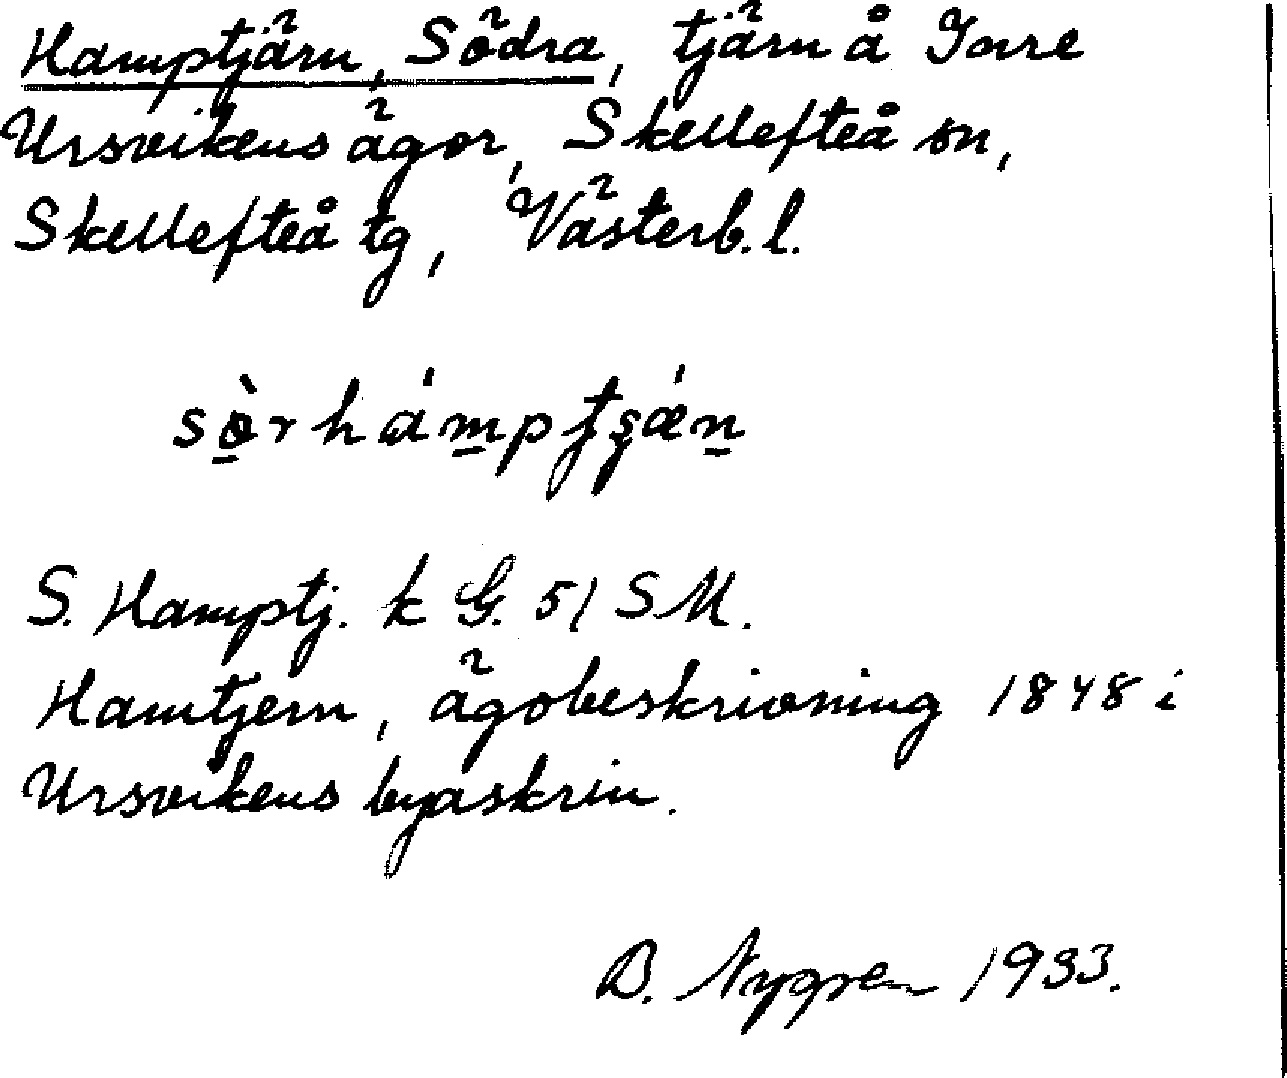 Hamptjärn, Södra, tjärn å Inre
Ursvikens ägor, Skellefteå sn,
Skellefteå tg, Västerb. l.
sö̀rhámptʂǽn
S. Hamptj. k G. 51 SM.
Hamtjern, ägobeskrivning 1848 i
Ursvikens byaskrin.
B. Nygren 1933.